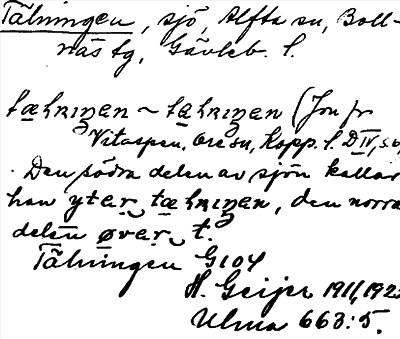 Tälningen, sjö, Alfta sn, Boll-
näs tg, Gävleb. l.
tæhnıŋen ~ tæhnıŋen (Jon fr
Vitaspen, Ore sn, Kopp. l. D IV, s. 6,
. Den södra delen av sjön kallar
han yter tæhnıŋen, den norra
delen øver t.
Tälningen G104
H. Geijer 1911, 192
Ulma 663:5.